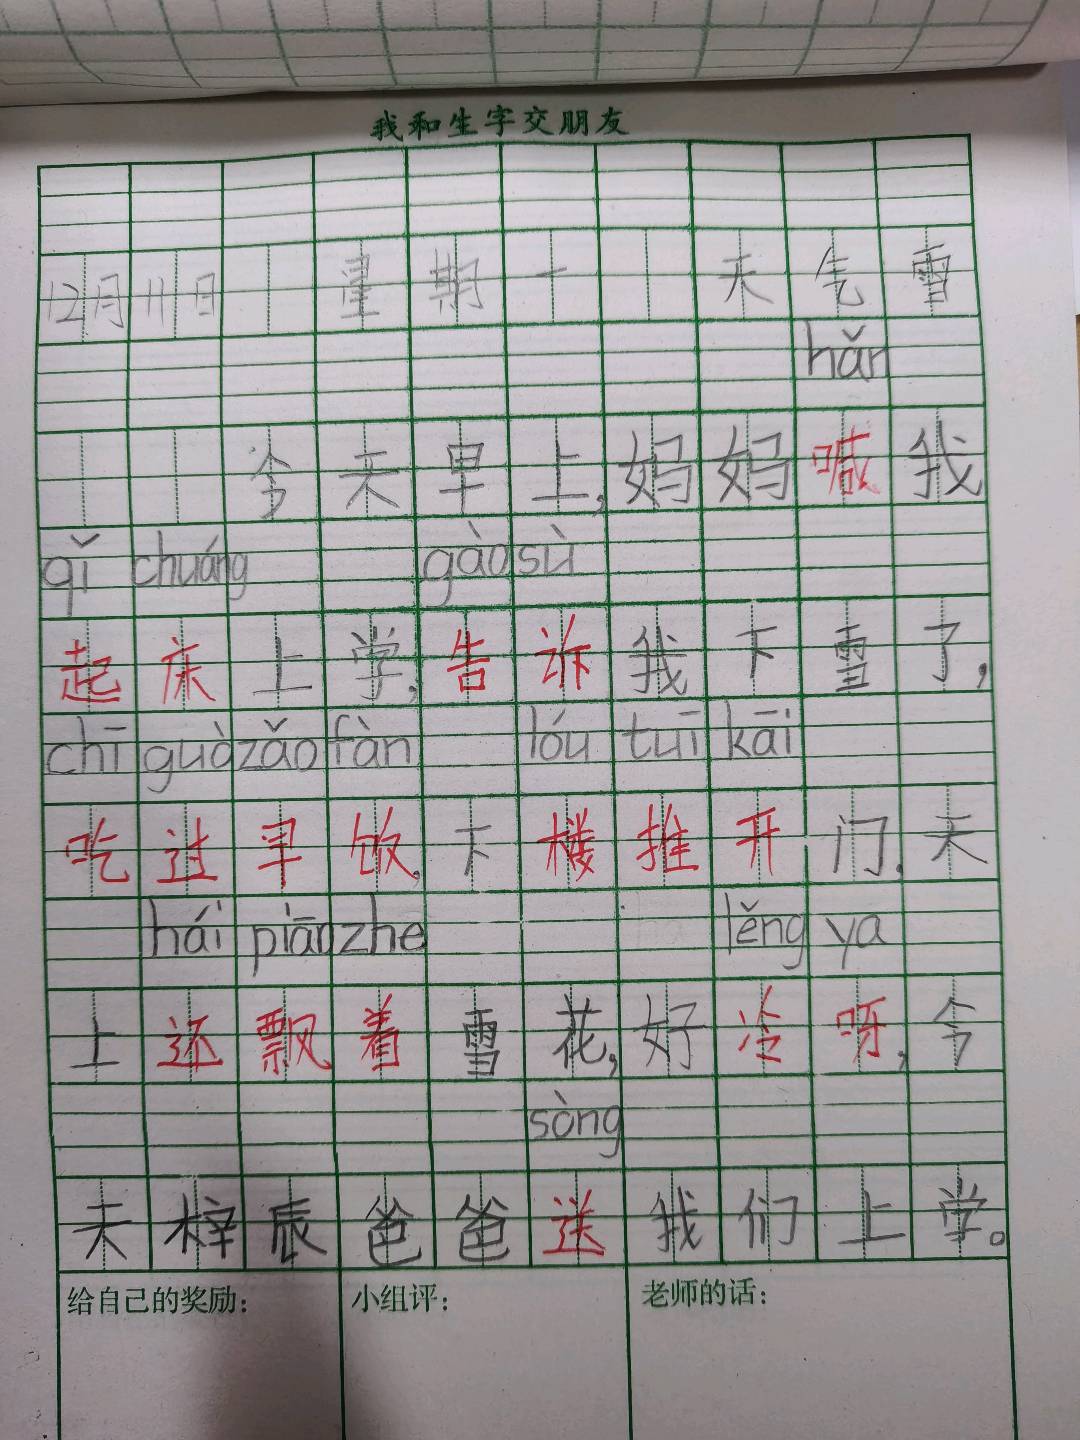 我和生字交朋友
12月11日 星期一 天气雪
hǎn
今天早上,妈妈喊我
qǐ chuáng gàosù
起床上学,告诉我下雪了,
chī guò zǎo fàn lóu tuī kāi
吃过早饭,下楼推开门,天
hái piāo zhe lěng ya
上还飘着雪花,好冷呀,今
sòng
天梓辰爸爸送我们上学。
给自己的奖励: 小组评: 老师的话: